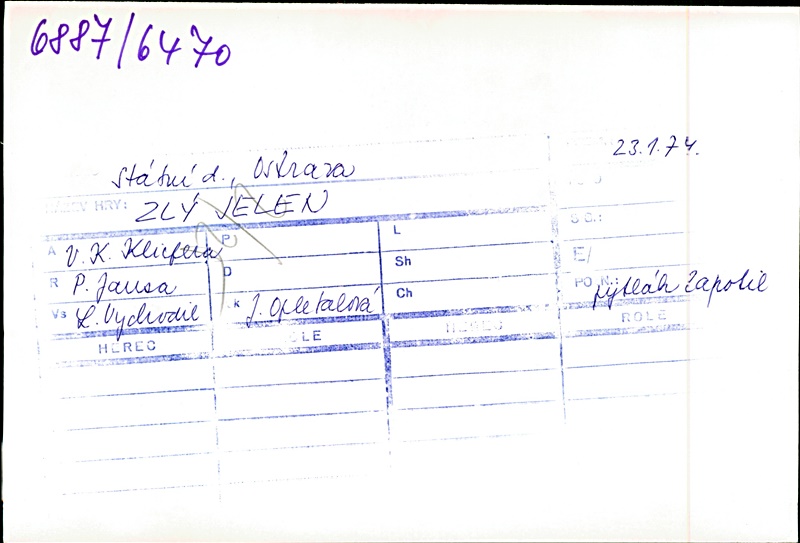 6887/6470
23.1.74.
Státní d., Ostrava
NÁZEV HRY: ZLÝ JELEN
A V. K. Klicpera P L S Č.:
R P. Jansa D Sh E/
Vs L. Vychodil k J. Opletalová Ch POZN.: pytlák Zapolil
HEREC ROLE HEREC ROLE